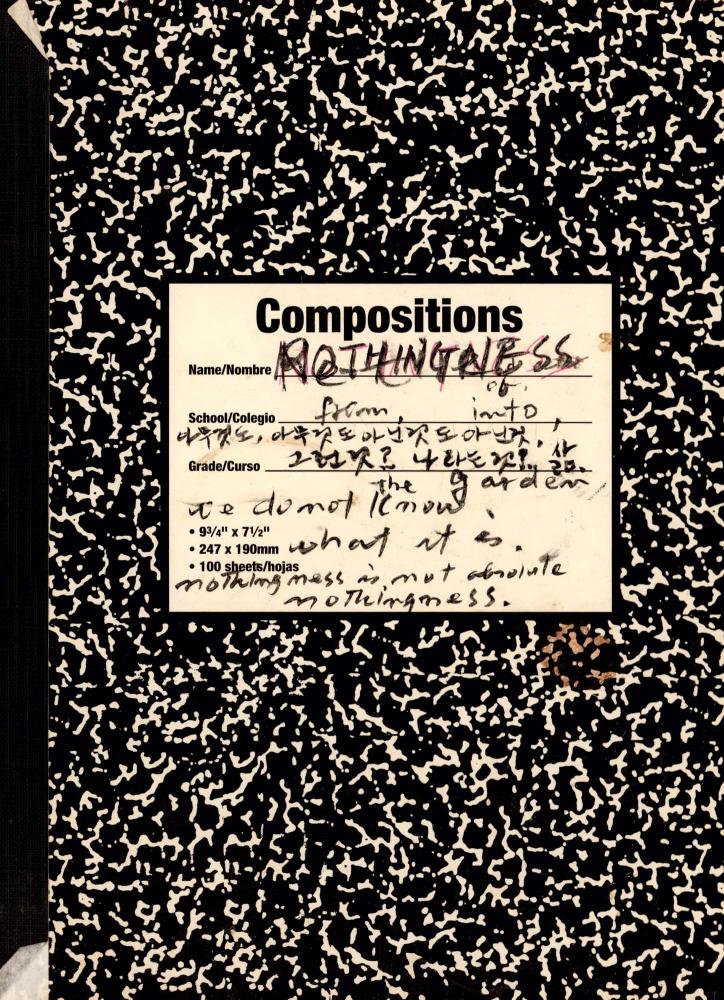 Compositions
Name/Nombre NOTHINGNESS
of,
School/Colegio from, into,
아무것도, 아무것도 아닌것도 아닌것,
Grade/Curso 그런것? 나라는것?,
the garden,
we do not know,
• 9¾" x 7½"
• 247 x 190mm what it is.
• 100 sheets/hojas
nothingness is not absolute
nothingness.